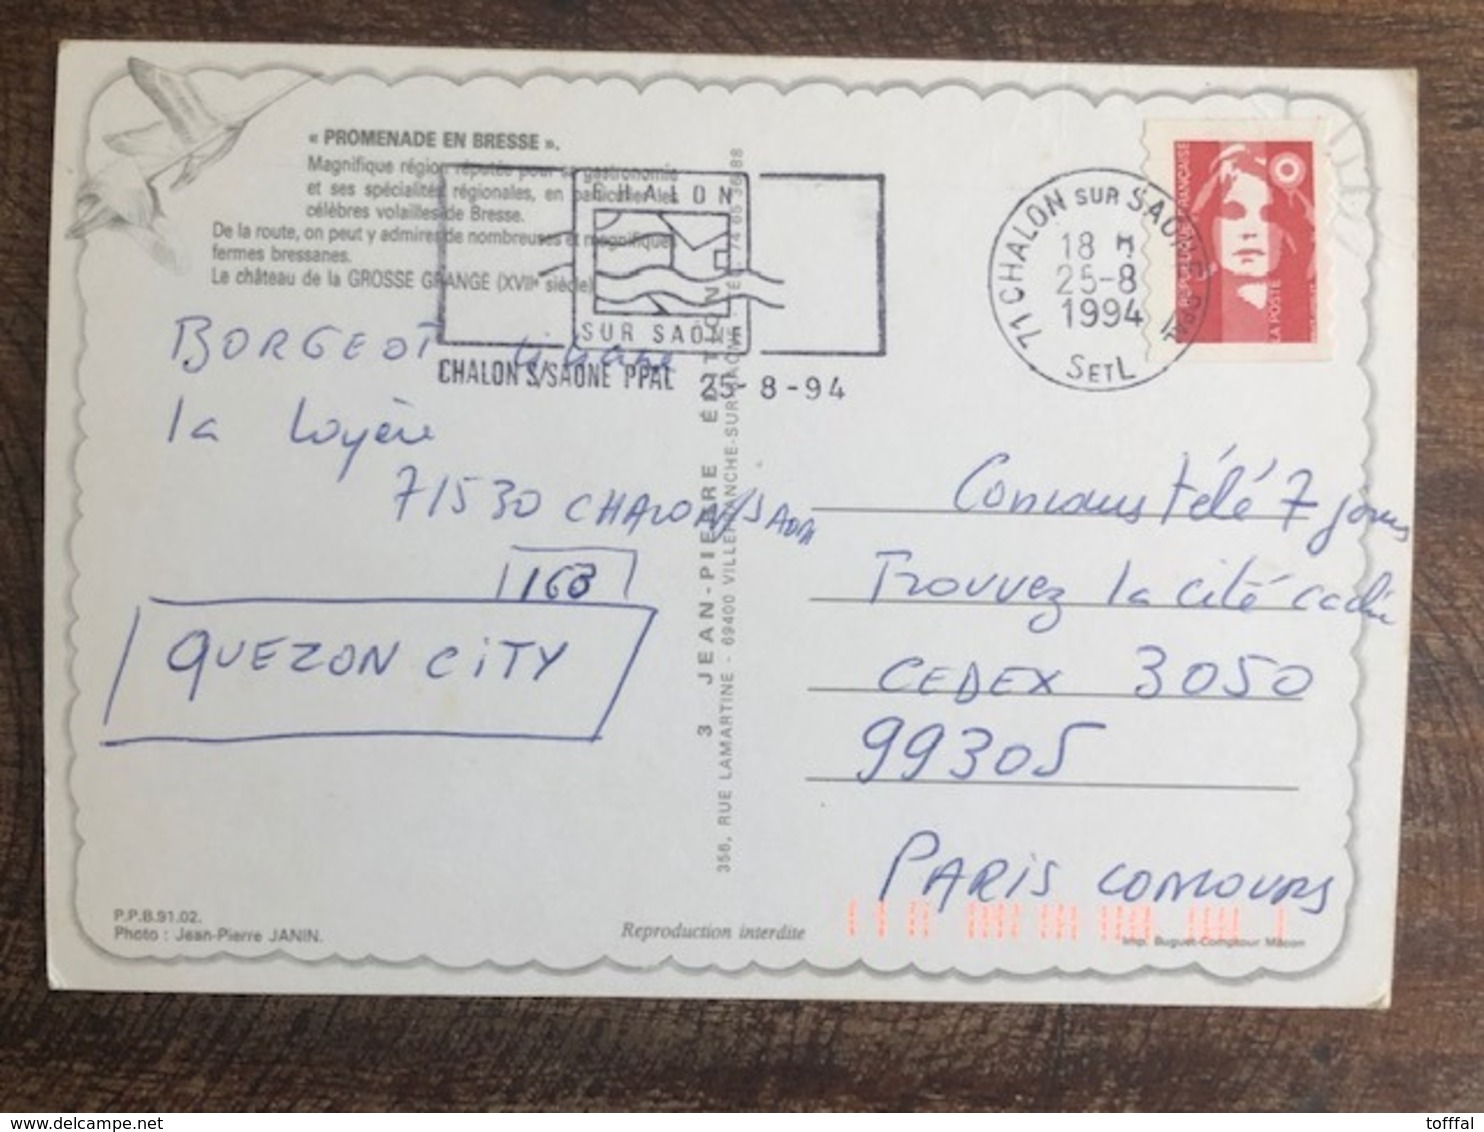 « PROMENADE EN BRESSE ».
Magnifique région réputée pour sa gastronomie
et ses spécialités régionales, en particulier les
célèbres volailles de Bresse.
De la route, on peut y admirer de nombreuses et magnifiques
fermes bressanes.
Le château de la GROSSE GRANGE (XVIIe siècle)
CHALON
SUR SAÔNE
CHALON S/SAONE PPAL 25-8-94
71 CHALON SUR SAONE PPAL
18 H
25-8
1994
S ET L
REPUBLIQUE FRANÇAISE
LA POSTE
BORGEOT Liliane
la Loyère
71530 CHALON/SAONE
163
QUEZON CITY
3 JEAN-PIERRE EDITION
356, RUE LAMARTINE - 69400 VILLEFRANCHE-SUR-SAÔNE - TÉL. 74 65 38 88
Concours Télé 7 jours
Trouvez la cité cachée
CEDEX 3050
99305
PARIS CONCOURS
P.P.B.91.02.
Photo : Jean-Pierre JANIN.
Reproduction interdite
Imp. Buguet-Comptour Mâcon
delcampe.net
tofffal